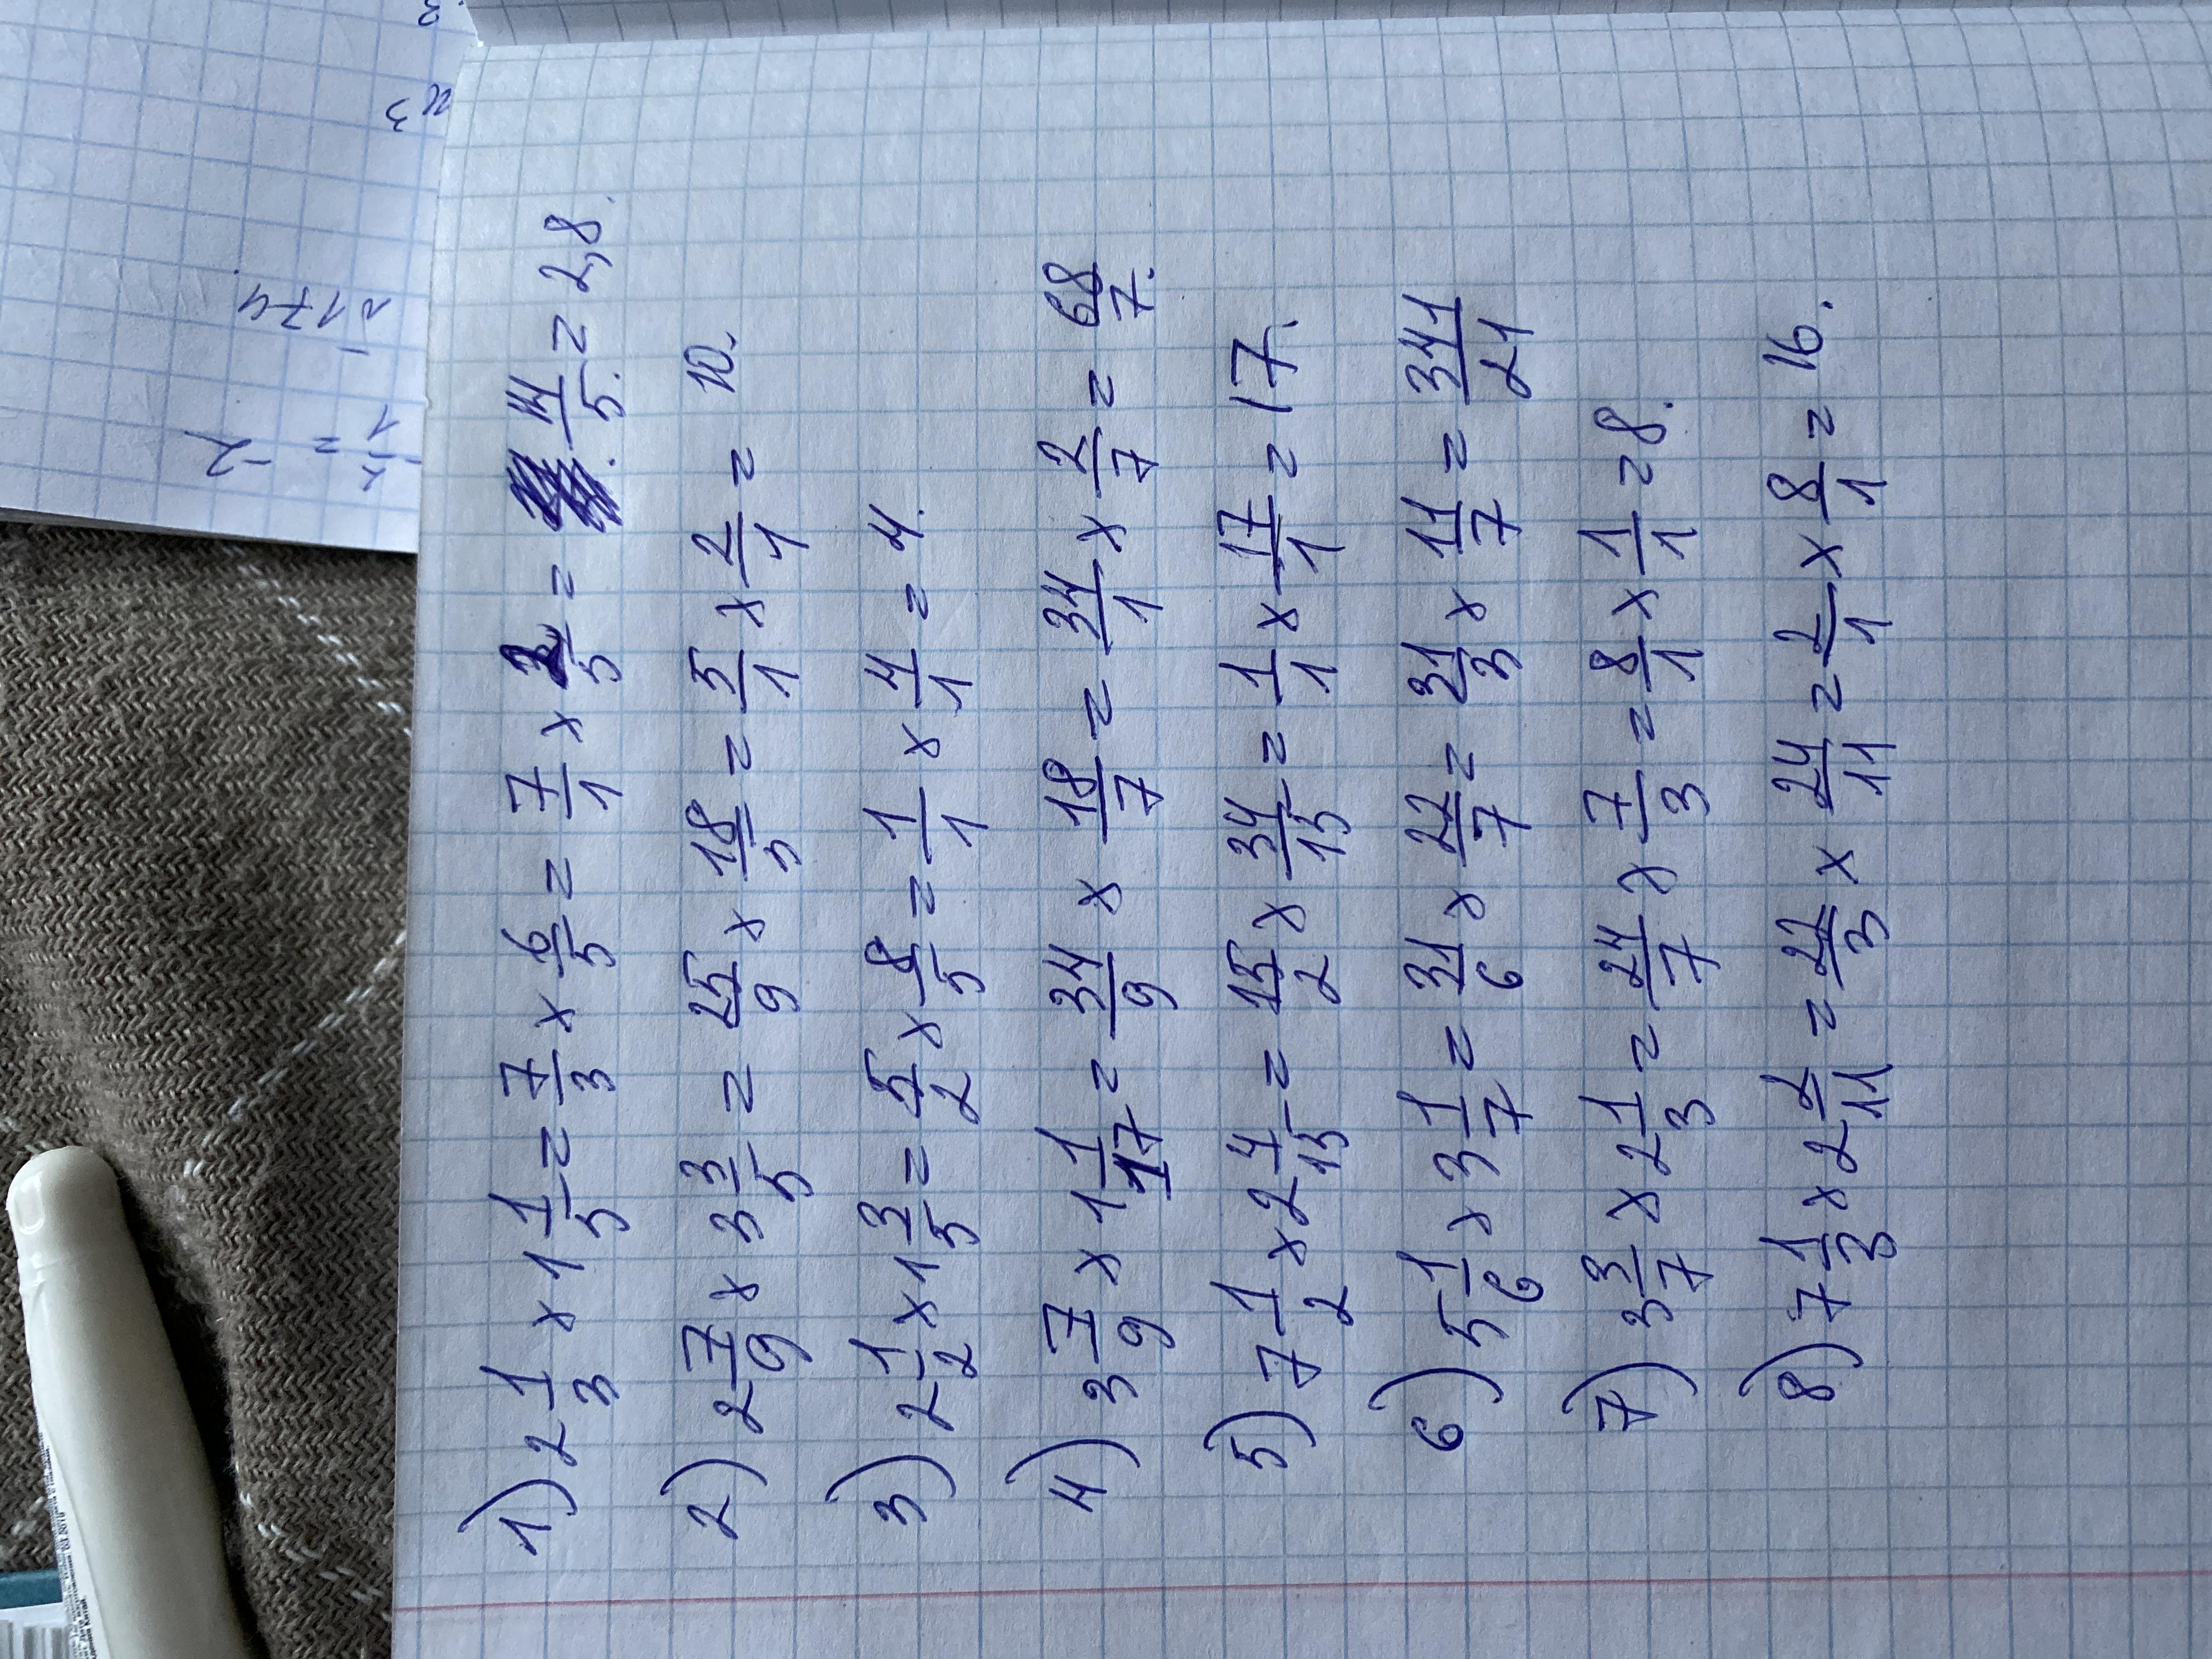 1) 2 1/3 x 1 1/5 = 7/3 x 6/5 = 7/1 x 2/5 = 14/5. = 2,8.
2) 2 7/9 x 3 3/5 = 25/9 x 18/5 = 5/1 x 2/1 = 10.
3) 2 1/2 x 1 3/5 = 5/2 x 8/5 = 1/1 x 4/1 = 4.
4) 3 7/9 x 1 1/17 = 34/9 x 18/7 = 34/1 x 2/7 = 68/7.
5) 7 1/2 x 2 4/15 = 15/2 x 34/15 = 1/1 x 17/1 = 17.
6) 5 1/6 x 3 1/7 = 31/6 x 22/7 = 31/3 x 11/7 = 341/21
7) 3 3/7 x 2 1/3 = 24/7 x 7/3 = 8/1 x 1/1 = 8.
8) 7 1/3 x 2 2/11 = 22/3 x 24/11 = 2/1 x 8/1 = 16.